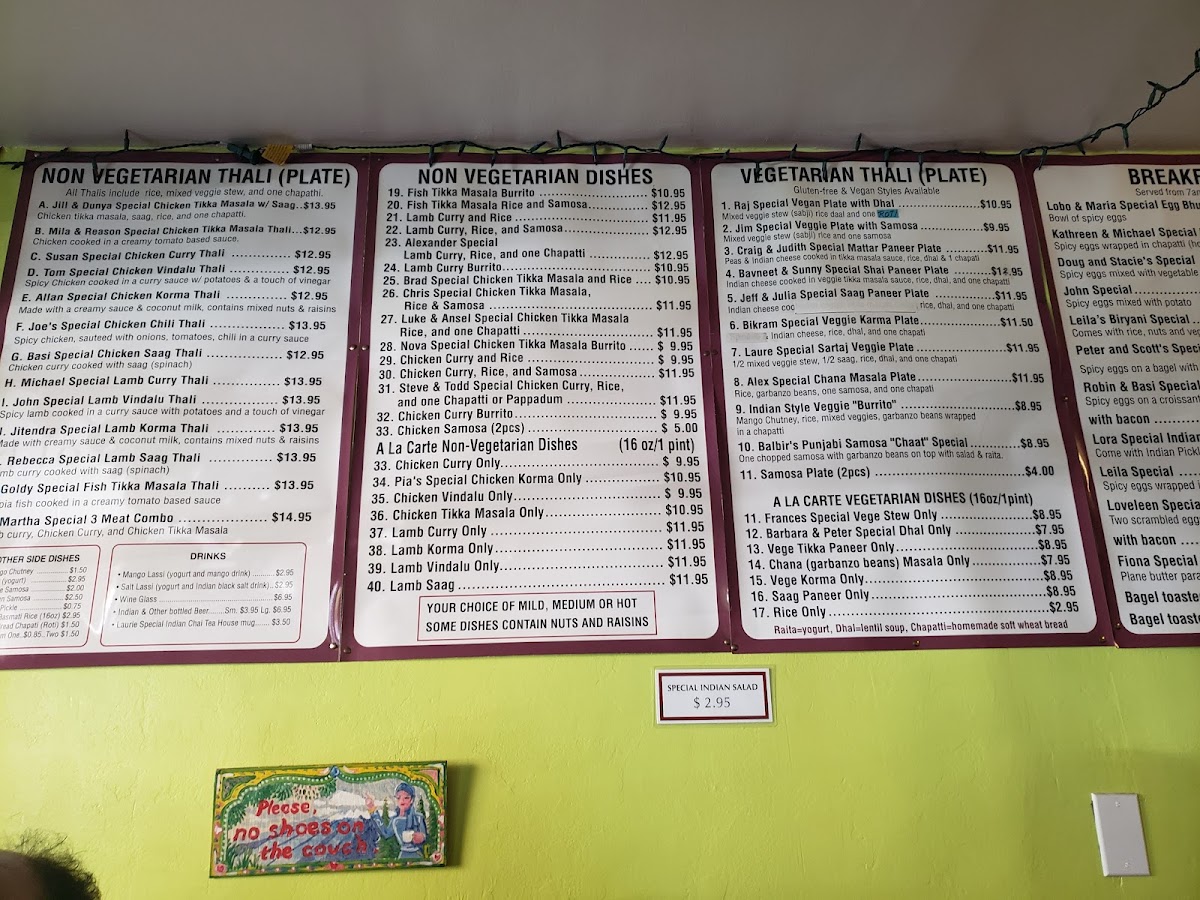 NON VEGETARIAN THALI (PLATE)
All Thalis include rice, mixed veggie stew, and one chapathi.
A. Jill & Dunya Special Chicken Tikka Masala w/ Saag..$13.95
Chicken tikka masala, saag, rice, and one chapati.
B. Mila & Reason Special Chicken Tikka Masala Thali...$12.95
Chicken cooked in a creamy tomato based sauce.
C. Susan Special Chicken Curry Thali ............... $12.95
D. Tom Special Chicken Vindalu Thali ............... $12.95
Spicy Chicken cooked in a curry sauce w/ potatoes & a touch of vinegar
E. Allan Special Chicken Korma Thali ............... $12.95
Made with a creamy sauce & coconut milk, contains mixed nuts & raisins
F. Joe's Special Chicken Chili Thali .................. $13.95
Spicy chicken, sauteed with onions, tomatoes, chili in a curry sauce
G. Basi Special Chicken Saag Thali .................. $12.95
Chicken curry cooked with saag (spinach)
H. Michael Special Lamb Curry Thali ............... $13.95
I. John Special Lamb Vindalu Thali .................. $13.95
Spicy lamb cooked in a curry sauce with potatoes and a touch of vinegar
Jitendra Special Lamb Korma Thali ............... $13.95
Made with creamy sauce & coconut milk, contains mixed nuts & raisins
Rebecca Special Lamb Saag Thali ............... $13.95
curry cooked with saag (spinach)
Goldy Special Fish Tikka Masala Thali ......... $13.95
fish cooked in a creamy tomato based sauce
Martha Special 3 Meat Combo ..................... $14.95
curry, Chicken Curry, and Chicken Tikka Masala
OTHER SIDE DISHES
Chutney ............ $1.50
(yogurt) ............ $2.95
Samosa ............ $2.00
Samosa ............ $2.50
Pickle ............ $0.75
Basmati Rice (16oz) $2.95
Chapati (Roti) $1.50
One..$0.85..Two $1.50
DRINKS
• Mango Lassi (yogurt and mango drink) ..........$2.95
• Salt Lassi (yogurt and Indian black salt drink)..$2.95
• Wine Glass ..........$6.95
• Indian & Other bottled Beer.......Sm. $3.95 Lg. $6.95
• Laurie Special Indian Chai Tea House mug.......$3.50
NON VEGETARIAN DISHES
19. Fish Tikka Masala Burrito ..................... $10.95
20. Fish Tikka Masala Rice and Samosa............... $12.95
21. Lamb Curry and Rice ..................... $11.95
22. Lamb Curry, Rice, and Samosa..................... $12.95
23. Alexander Special
Lamb Curry, Rice, and one Chapatti ............... $12.95
24. Lamb Curry Burrito..................... $10.95
25. Brad Special Chicken Tikka Masala and Rice .... $10.95
26. Chris Special Chicken Tikka Masala,
Rice & Samosa ..................... $11.95
27. Luke & Ansel Special Chicken Tikka Masala
Rice, and one Chapatti ..................... $11.95
28. Nova Special Chicken Tikka Masala Burrito ...... $ 9.95
29. Chicken Curry and Rice ..................... $ 9.95
30. Chicken Curry, Rice, and Samosa..................... $11.95
31. Steve & Todd Special Chicken Curry, Rice,
and one Chapatti or Pappadum ..................... $11.95
32. Chicken Curry Burrito..................... $ 9.95
33. Chicken Samosa (2pcs) ..................... $ 5.00
A La Carte Non-Vegetarian Dishes (16 oz/1 pint)
33. Chicken Curry Only..................... $ 9.95
34. Pia's Special Chicken Korma Only ............... $10.95
35. Chicken Vindalu Only..................... $ 9.95
36. Chicken Tikka Masala Only..................... $10.95
37. Lamb Curry Only ..................... $11.95
38. Lamb Korma Only..................... $11.95
39. Lamb Vindalu Only..................... $11.95
40. Lamb Saag ..................... $11.95
YOUR CHOICE OF MILD, MEDIUM OR HOT
SOME DISHES CONTAIN NUTS AND RAISINS
VEGETARIAN THALI (PLATE)
Gluten-free & Vegan Styles Available
1. Raj Special Vegan Plate with Dhal ..................... $10.95
Mixed veggie stew (sabji) rice daal and one Roti
2. Jim Special Veggie Plate with Samosa ............... $9.95
Mixed veggie stew (sabji) rice and one samosa
3. Craig & Judith Special Mattar Paneer Plate ......... $11.95
Peas & Indian cheese cooked in tikka masala sauce, rice, dhal, & 1 chapati
4. Bavneet & Sunny Special Shai Paneer Plate .........
Indian cheese cooked in veggie tikka masala sauce, rice, dhal, and one chapati
5. Jeff & Julia Special Saag Paneer Plate ............... $11.95
Indian cheese coo rice, dhal, and one chapati
6. Bikram Special Veggie Karma Plate..................... $11.50
Indian cheese, rice, dhal, and one chapati
7. Laure Special Sartaj Veggie Plate..................... $11.95
1/2 mixed veggie stew, 1/2 saag, rice, dhal, and one chapati
8. Alex Special Chana Masala Plate..................... $11.95
Rice, garbanzo beans, one samosa, and one chapati
9. Indian Style Veggie "Burrito" ..................... $8.95
Mango Chutney, rice, mixed veggies, garbanzo beans wrapped
in a chapatti
10. Balbir's Punjabi Samosa "Chaat" Special ......... $8.95
One chopped samosa with garbanzo beans on top with salad & raita.
11. Samosa Plate (2pcs) ..................... $4.00
A LA CARTE VEGETARIAN DISHES (16oz/1pint)
11. Frances Special Vege Stew Only ..................... $8.95
12. Barbara & Peter Special Dhal Only ............... $7.95
13. Vege Tikka Paneer Only..................... $8.95
14. Chana (garbanzo beans) Masala Only............... $7.95
15. Vege Korma Only..................... $8.95
16. Saag Paneer Only ..................... $8.95
17. Rice Only ..................... $2.95
Raita=yogurt, Dhal=lentil soup, Chapatti=homemade soft wheat bread
BREAKF
Served from 7a
Lobo & Maria Special Egg Bhu
Bowl of spicy eggs
Kathreen & Michael Special
Spicy eggs wrapped in chapatti (
Doug and Stacie's Special
Spicy eggs mixed with vegetable
John Special
Spicy eggs mixed with potato
Leila's Biryani Special
Comes with rice, nuts and ve
Peter and Scott's Speci
Spicy eggs on a bagel with
Robin & Basi Special
Spicy eggs on a croissant
with bacon
Lora Special Indian
Come with Indian Pickl
Leila Special
Spicy eggs wrapped i
Loveleen Specia
Two scrambled egg
with bacon
Fiona Special
Plane butter par
Bagel toaste
Bagel toast
SPECIAL INDIAN SALAD
$ 2.95
Please,
no shoes on
the couch